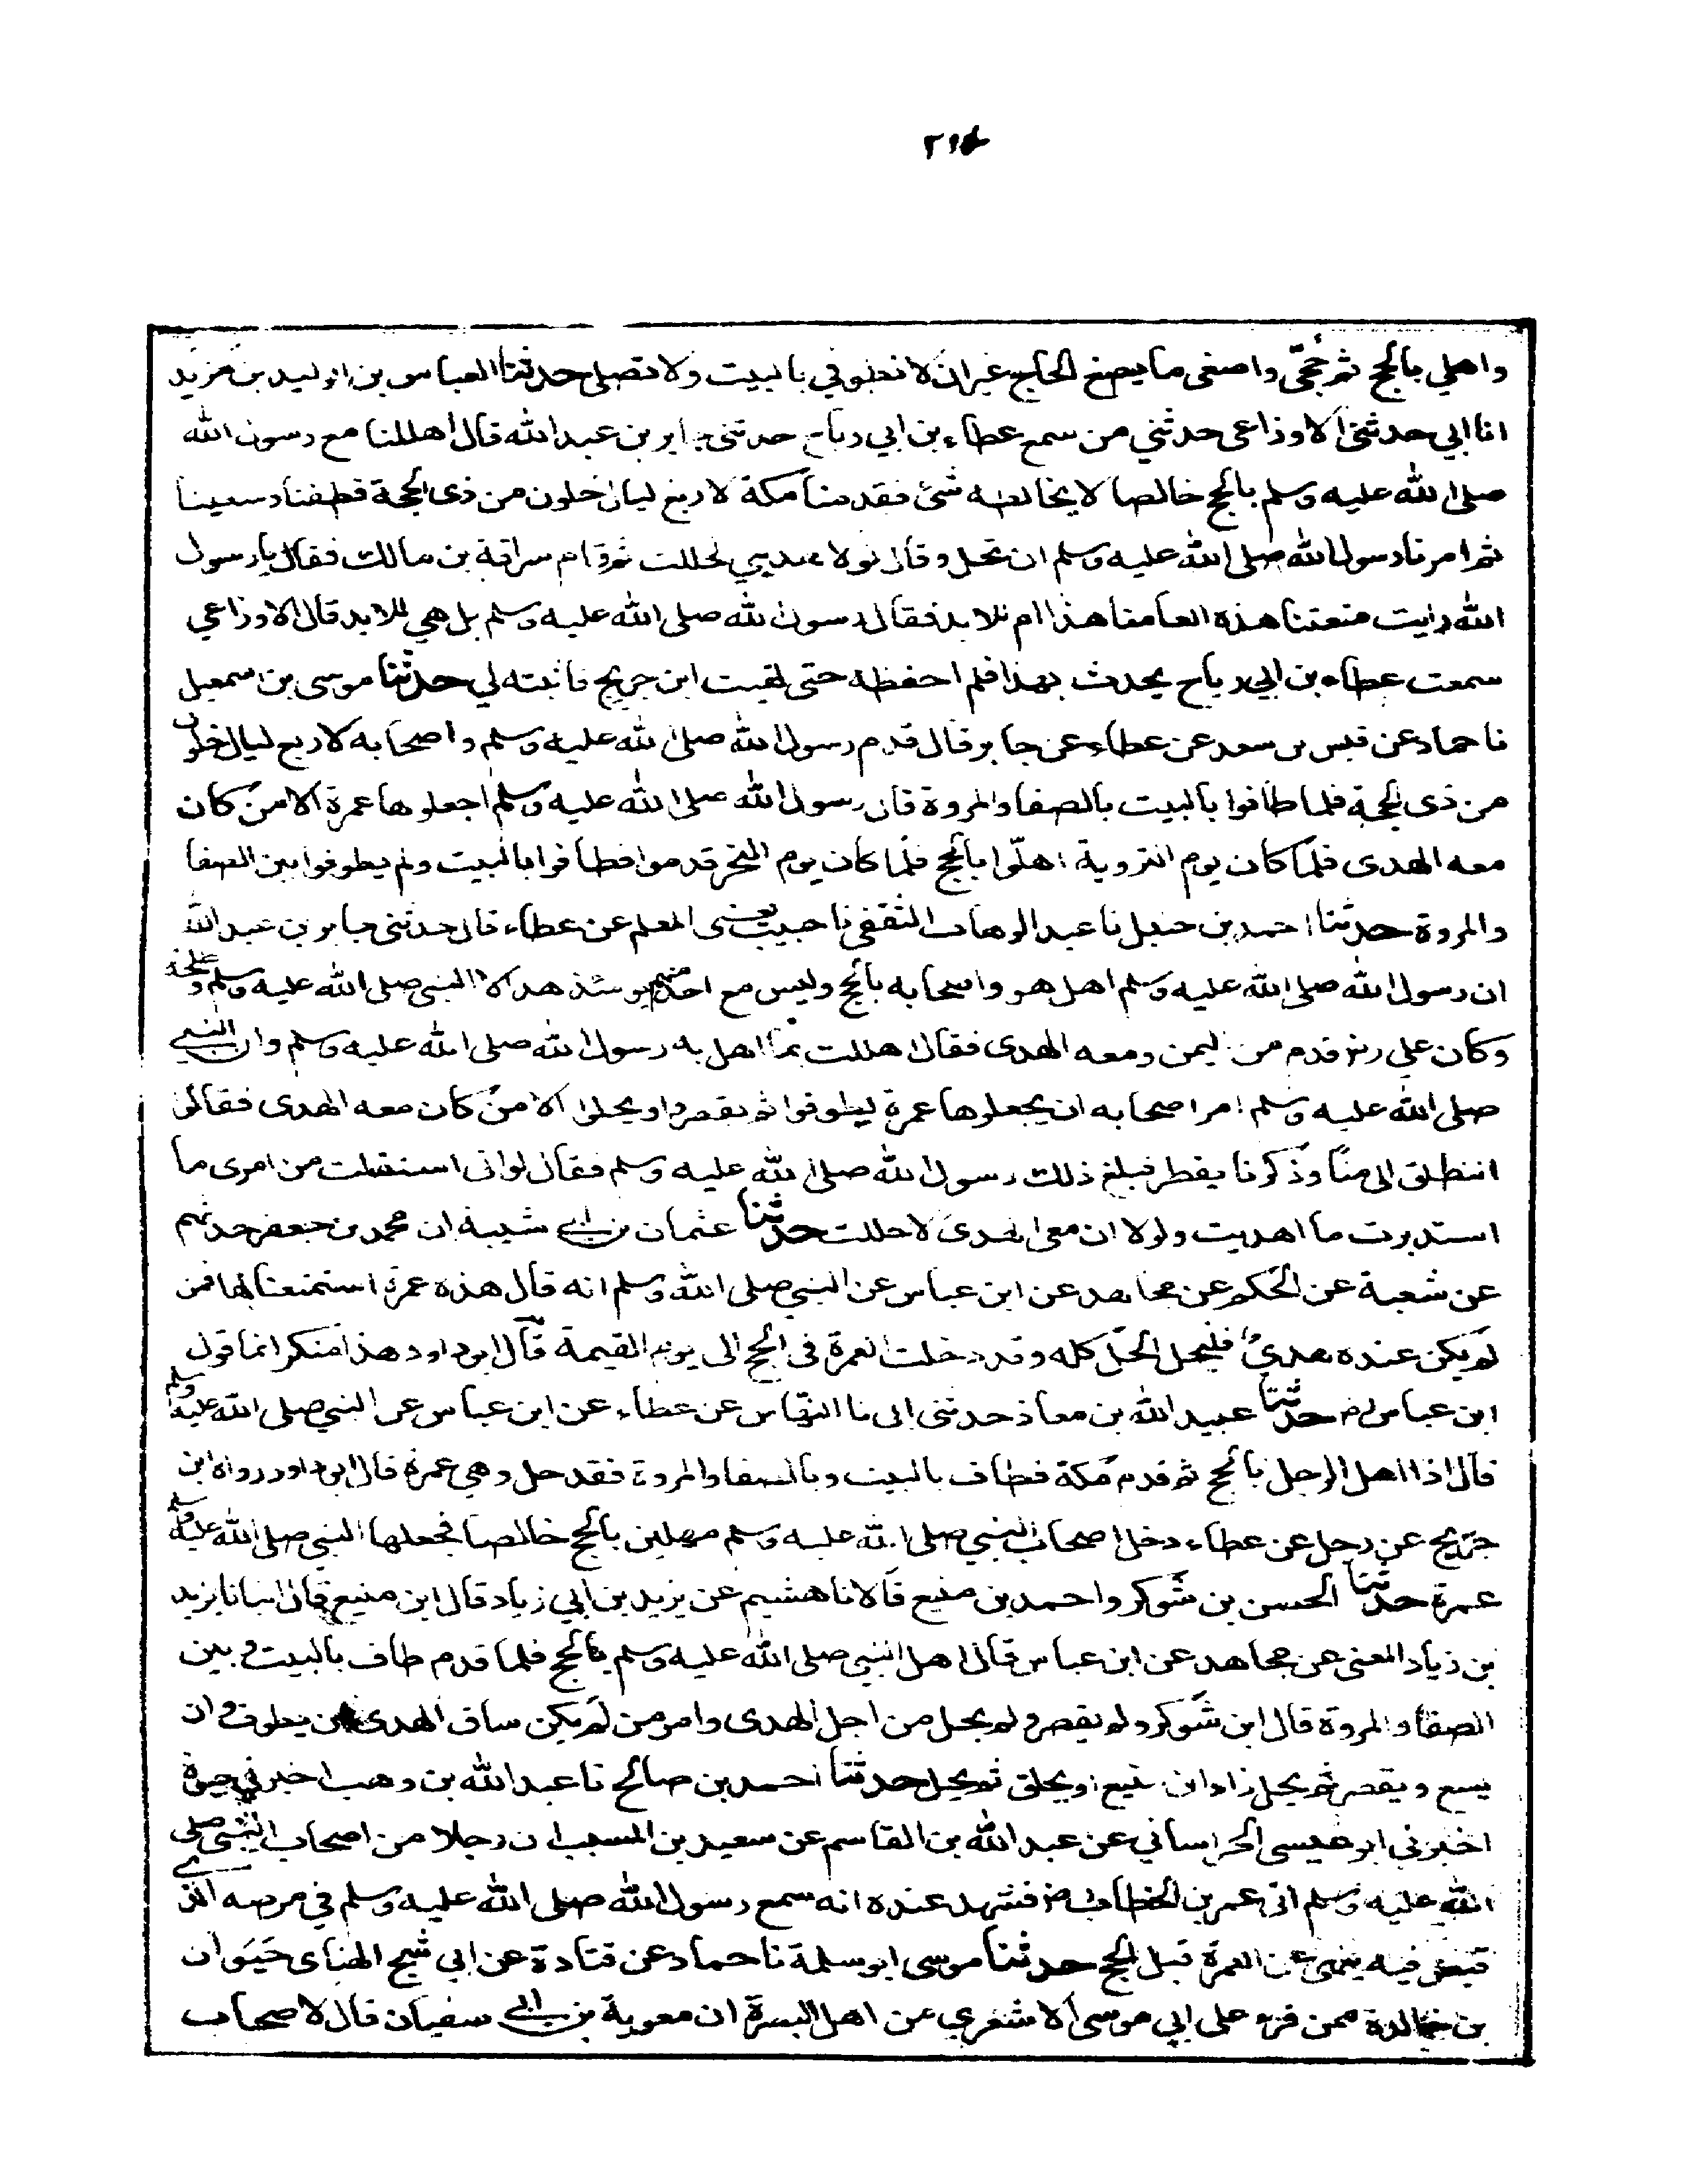 واهلي بالحج ثم حجّى واصنعى ما يصنع الحاج غير ان لا تطوفي بالبيت ولا تصلى حدثنا العباس بن الوليد بن مزيد
انا ابي حدثنى الاوزاعى حدثني من سمع عطاء بن ابي رباح حدثنى جابر بن عبد الله قال اهللنا مع رسول الله
صلى الله عليه وسلم بالحج خالصا لا يخالطه شئ فقدمنا مكة لاربع ليال خلون من ذى الحجة فطفنا وسعينا
ثم امرنا رسول الله صلى الله عليه وسلم ان نحل وقال لولا هديي لحللت ثم قام سراقة بن مالك فقال يا رسول
الله رايت متعتنا هذه العامنا هذا ام للابد فقال رسول الله صلى الله عليه وسلم بل هي للابد قال الاوزاعي
سمعت عطاء بن ابي رباح يحدث بهذا فلم احفظه حتى لقيت ابن جريج فاثبته لي حدثنا موسى بن اسمعيل
نا حماد عن قيس بن سعد عن عطاء عن جابر قال قدم رسول الله صلى الله عليه وسلم واصحابه لاربع ليال خلون
من ذى الحجة فلما طافوا بالبيت بالصفا والمروة قال رسول الله صلى الله عليه وسلم اجعلوها عمرة الا من كان
معه الهدى فلمّا كان يوم التروية اهلّوا بالحج فلمّا كان يوم النحر قدموا فطافوا بالبيت ولم يطوفوا بين الصفا
والمروة حدثنا احمد بن حنبل نا عبد الوهاب الثقفي نا حبيب يعنى المعلم عن عطاء قال حدثنى جابر بن عبد الله
ان رسول الله صلى الله عليه وسلم اهل هو واصحابه بالحج وليس مع احد منهم يومئذ هد الا النبى صلى الله عليه وسلم وطلحة
وكان علي رض قدم من اليمن ومعه الهدى فقال اهللت بما اهل به رسول الله صلى الله عليه وسلم وان النبي
صلى الله عليه وسلم امر اصحابه ان يجعلوها عمرة ليطوفوا ثم يقصروا ويحلوا الا من كان معه الهدى فقالوا
اننطلق الى منًا وذكرنا يقطر فبلغ ذلك رسول الله صلى الله عليه وسلم فقال لو انى استقبلت من امرى ما
استدبرت ما اهديت ولولا ان معى الهدى لاحللت حدثنا عثمان بن ابي شيبة ان محمد بن جعفر حدثهم
عن شعبة عن الحكم عن مجاهد عن ابن عباس عن النبي صلى الله وسلم انه قال هذه عمرة استمتعنا بها فمن
لم يكن عنده هدىٌ فليحل الحل كله وقد دخلت العمرة فى الحج الى يوم القيمة قال ابو داود هذا منكر انما قول
ابن عباس رض حدثنا عبيد الله بن معاذ حدثنى ابى نا النهّاس عن عطاء عن ابن عباس عن النبي صلى الله عليه وسلم
قال اذا اهل الرجل بالحج ثم قدم مكة فطاف بالبيت وبالصفا والمروة فقد حل وهي عمرة قال ابو داود رواه ابن
جريج عن رجل عن عطاء دخل اصحاب النبي صلى الله عليه وسلم مهلين بالحج خالصا فجعلها النبي صلى الله عليه وسلم
عمرة حدثنا الحسن بن شوكر واحمد بن منيع قالا نا هشيم عن يزيد بن ابي زياد قال ابن منيع قال انبانا يزيد
بن زياد المعنى عن مجاهد عن ابن عباس قال اهل النبي صلى الله عليه وسلم بالحج فلما قدم طاف بالبيت وبين
الصفا والمروة قال ابن شوكر ولم يقصر ولم يحل من اجل الهدى وامر من لم يكن ساق الهدى من يطوف وان
يسع ويقصر ثم يحل زاد ابن منيع او يحلق ثم يحل حدثنا احمد بن صالح نا عبد الله بن وهب اخبرني حيوة
اخبرني ابو عيسى الخراساني عن عبد الله بن القاسم عن سعيد بن المسيب ان رجلا من اصحاب النبي صلى
الله عليه وسلم اتى عمر بن الخطاب رض فشهد عنده انه سمع رسول الله صلى الله عليه وسلم في مرضه الذي
قبض فيه ينهى عن العمرة قبل الحج حدثنا موسى ابو سلمة نا حماد عن قتادة عن ابي شيخ الهناى حيوان
بن خالدة ممن قرء على ابي موسى الاشعري من اهل البصرة ان معوية بن ابي سفيان قال لاصحاب